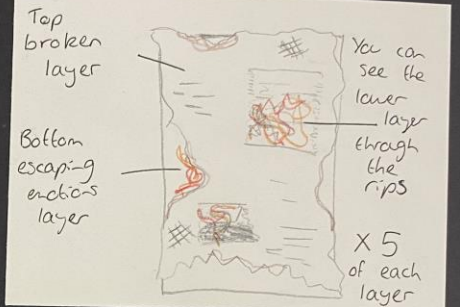 Top
broken
layer
Bottom
escaping
emotions
layer
You can
see the
lower
layer
through
the
rips
x 5
of each
layer